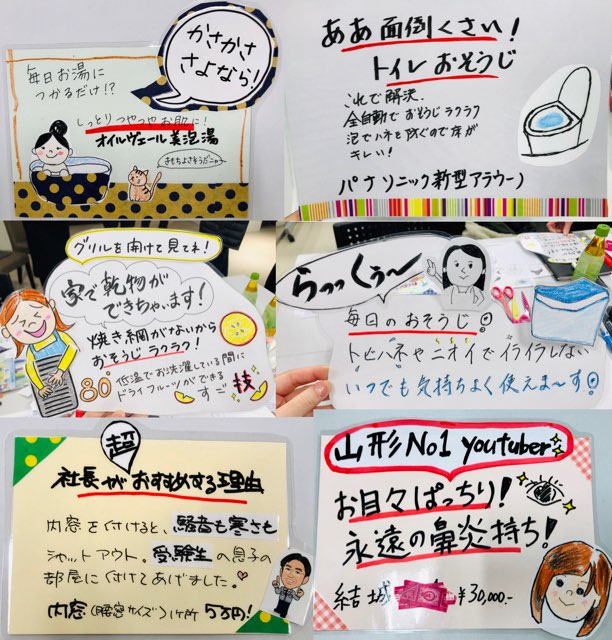 かさかさ
さよなら!
毎日お湯に
つかるだけ!?
しっとりつやつやお肌に!
オイルヴェール美泡湯
きもちよさそうだニャー
ああ面倒くさい!
トイレおそうじ
これで解決.
全自動でおそうじラクラク
泡でハネを防ぐので床が
キレイ!
パナソニック新型アラウーノ
グリルを開けて見てね!
家で乾物が
できちゃいます!
焼き網がないから
おそうじラクラク!
80
低温でお洗濯している間に
ドライフルーツができる
すご技
らっっくぅ〜
毎日のおそうじ!
トビハネやニオイでイライラしない
いつでも気持ちよく使えま〜す!
超
社長がおすすめする理由
内窓を付けると、騒音も寒さも
シャットアウト。受験生の息子の
部屋に付けてあげました。♥
内窓(腰窓サイズ)1ヶ所 5万円!
山形No1 youtuber
お目々ぱっちり!
永遠の鼻炎持ち!
結城
¥30,000-